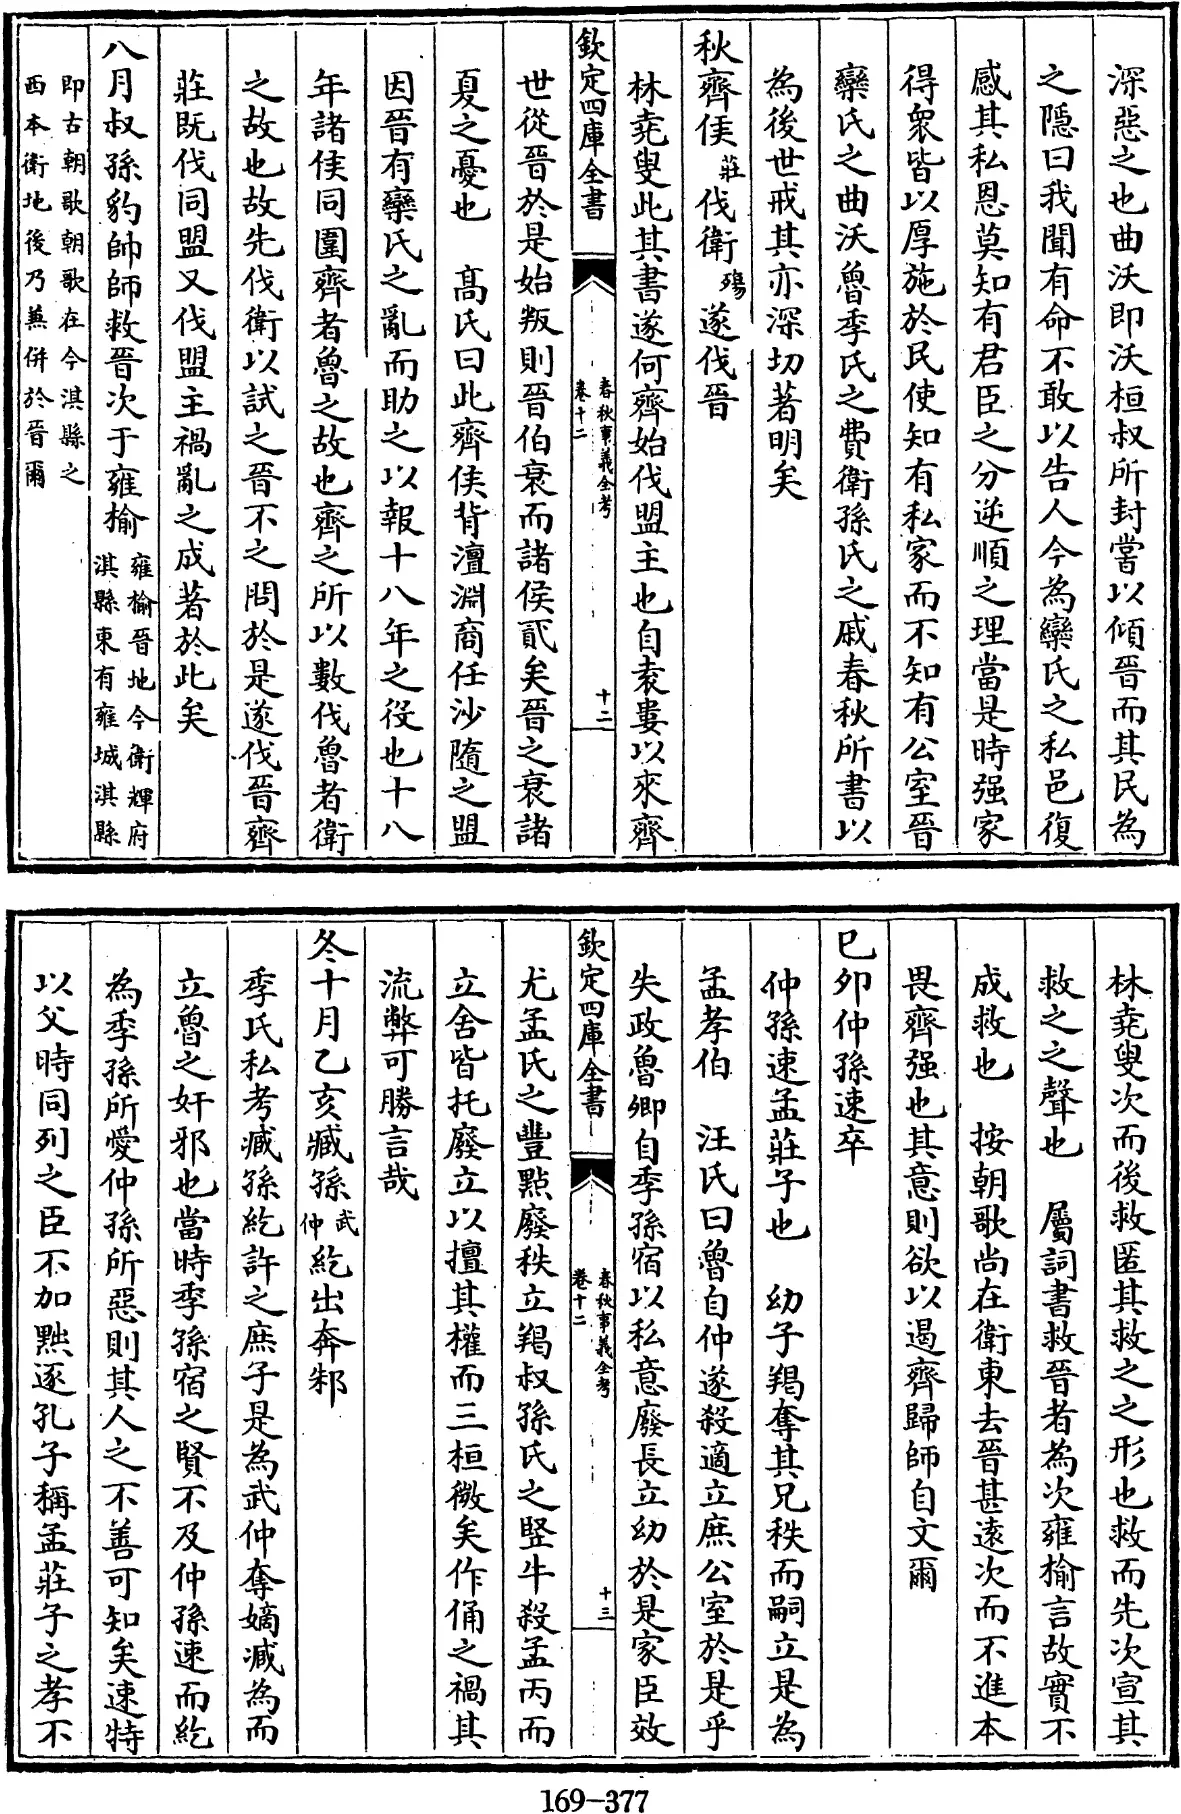 深惡之也曲沃即沃桓叔所封嘗以傾晉而其民為
之隱曰我聞有命不敢以告人今為欒氏之私邑復
感其私恩莫知有君臣之分逆順之理當是時强家
得衆皆以厚施於民使知有私家而不知有公室晉
欒氏之曲沃魯季氏之費衛孫氏之戚春秋所書以
為後世戒其亦深切著明矣
秋齊侯莊伐衛殤遂伐晉
林堯叟此其書遂何齊始伐盟主也自袁婁以來齊
欽定四庫全書
春秋事義全考
卷十二
十二
世從晉於是始叛則晉伯衰而諸侯貳矣晉之衰諸
夏之憂也　高氏曰此齊侯背澶淵商任沙隨之盟
因晉有欒氏之亂而助之以報十八年之役也十八
年諸侯同圍齊者魯之故也齊之所以數伐魯者衛
之故也故先伐衛以試之晉不之問於是遂伐晉齊
莊既伐同盟又伐盟主禍亂之成著於此矣
八月叔孫豹帥師救晉次于雍榆雍榆晉地今衛輝府
淇縣東有雍城淇縣
即古朝歌朝歌在今淇縣之
西本衛地後乃兼併於晉爾
林堯叟次而後救匿其救之之形也救而先次宣其
救之之聲也　屬詞書救晉者為次雍榆言故實不
成救也　按朝歌尚在衛東去晉甚遠次而不進本
畏齊强也其意則欲以遏齊歸師自文爾
已夘仲孫速卒
仲孫速孟莊子也　幼子羯奪其兄秩而嗣立是為
孟孝伯　汪氏曰魯自仲遂殺適立庶公室於是乎
失政魯卿自季孫宿以私意廢長立幼於是家臣效
欽定四庫全書
春秋事義全考
卷十二
十三
尤孟氏之豐點廢秩立羯叔孫氏之竪牛殺孟丙而
立舍皆托廢立以擅其權而三桓微矣作俑之禍其
流弊可勝言哉
冬十月乙亥臧孫武仲紇出奔邾
季氏私考臧孫紇許之庶子是為武仲奪嫡臧為而
立魯之奸邪也當時季孫宿之賢不及仲孫速而紇
為季孫所愛仲孫所惡則其人之不善可知矣速特
以父時同列之臣不加黜逐孔子稱孟莊子之孝不
169-377